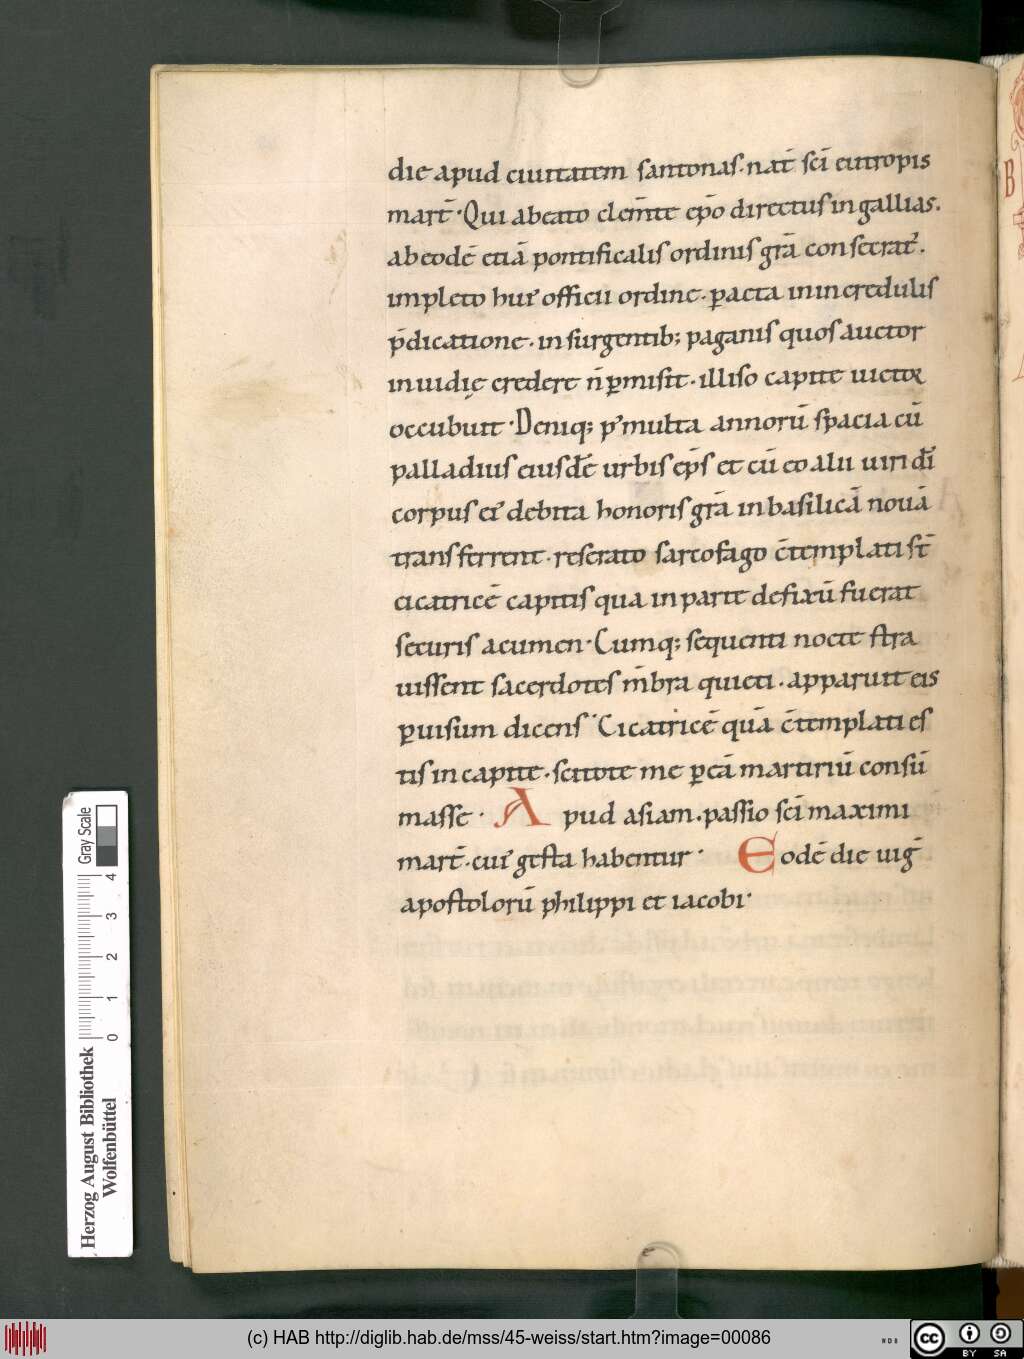 die apud ciuitatem santonas. nat̄ sc̄i eutropis
mart̄. Qui a beato clem̄te ep̄o directus in gallias.
ab eodē etiā pontificalis ordinis grā consecrat᷒.
impleto hui᷒ officii ordine. ꝑacta in incredulis
p̄dicatione. insurgentib; paganis quos auctor
inuidię credere n̄ ꝑmisit. illiso capite uictor
occubuit. Deniq; p᷒ multa annorū spacia cū
palladius eiusdē urbis ep̄s et cū eo alii uiri dī
corpus ei᷒ debita honoris grā in basilicā nouā
transferrent. reserato sarcofago c̄templati st̄
cicatricē capitis qua in parte defixū fuerat
securis acumen. Cumq; sequenti nocte stra
uissent sacerdotes m̄bra quieti. apparuit eis
ꝑ uisum dicens. Cicatricē quā c̄templati es
tis in capite. scitote me ꝑ eā martiriū consū
masse. Apud asiam. passio sc̄i maximi
mart̄. cui᷒ gesta habentur. Eodē die uig̅
apostolorū philippi et iacobi.
B
Herzog August Bibliothek
Wolfenbüttel
0 1 2 3 4
Gray Scale
(c) HAB http://diglib.hab.de/mss/45-weiss/start.htm?image=00086
WDB
cc
BY SA